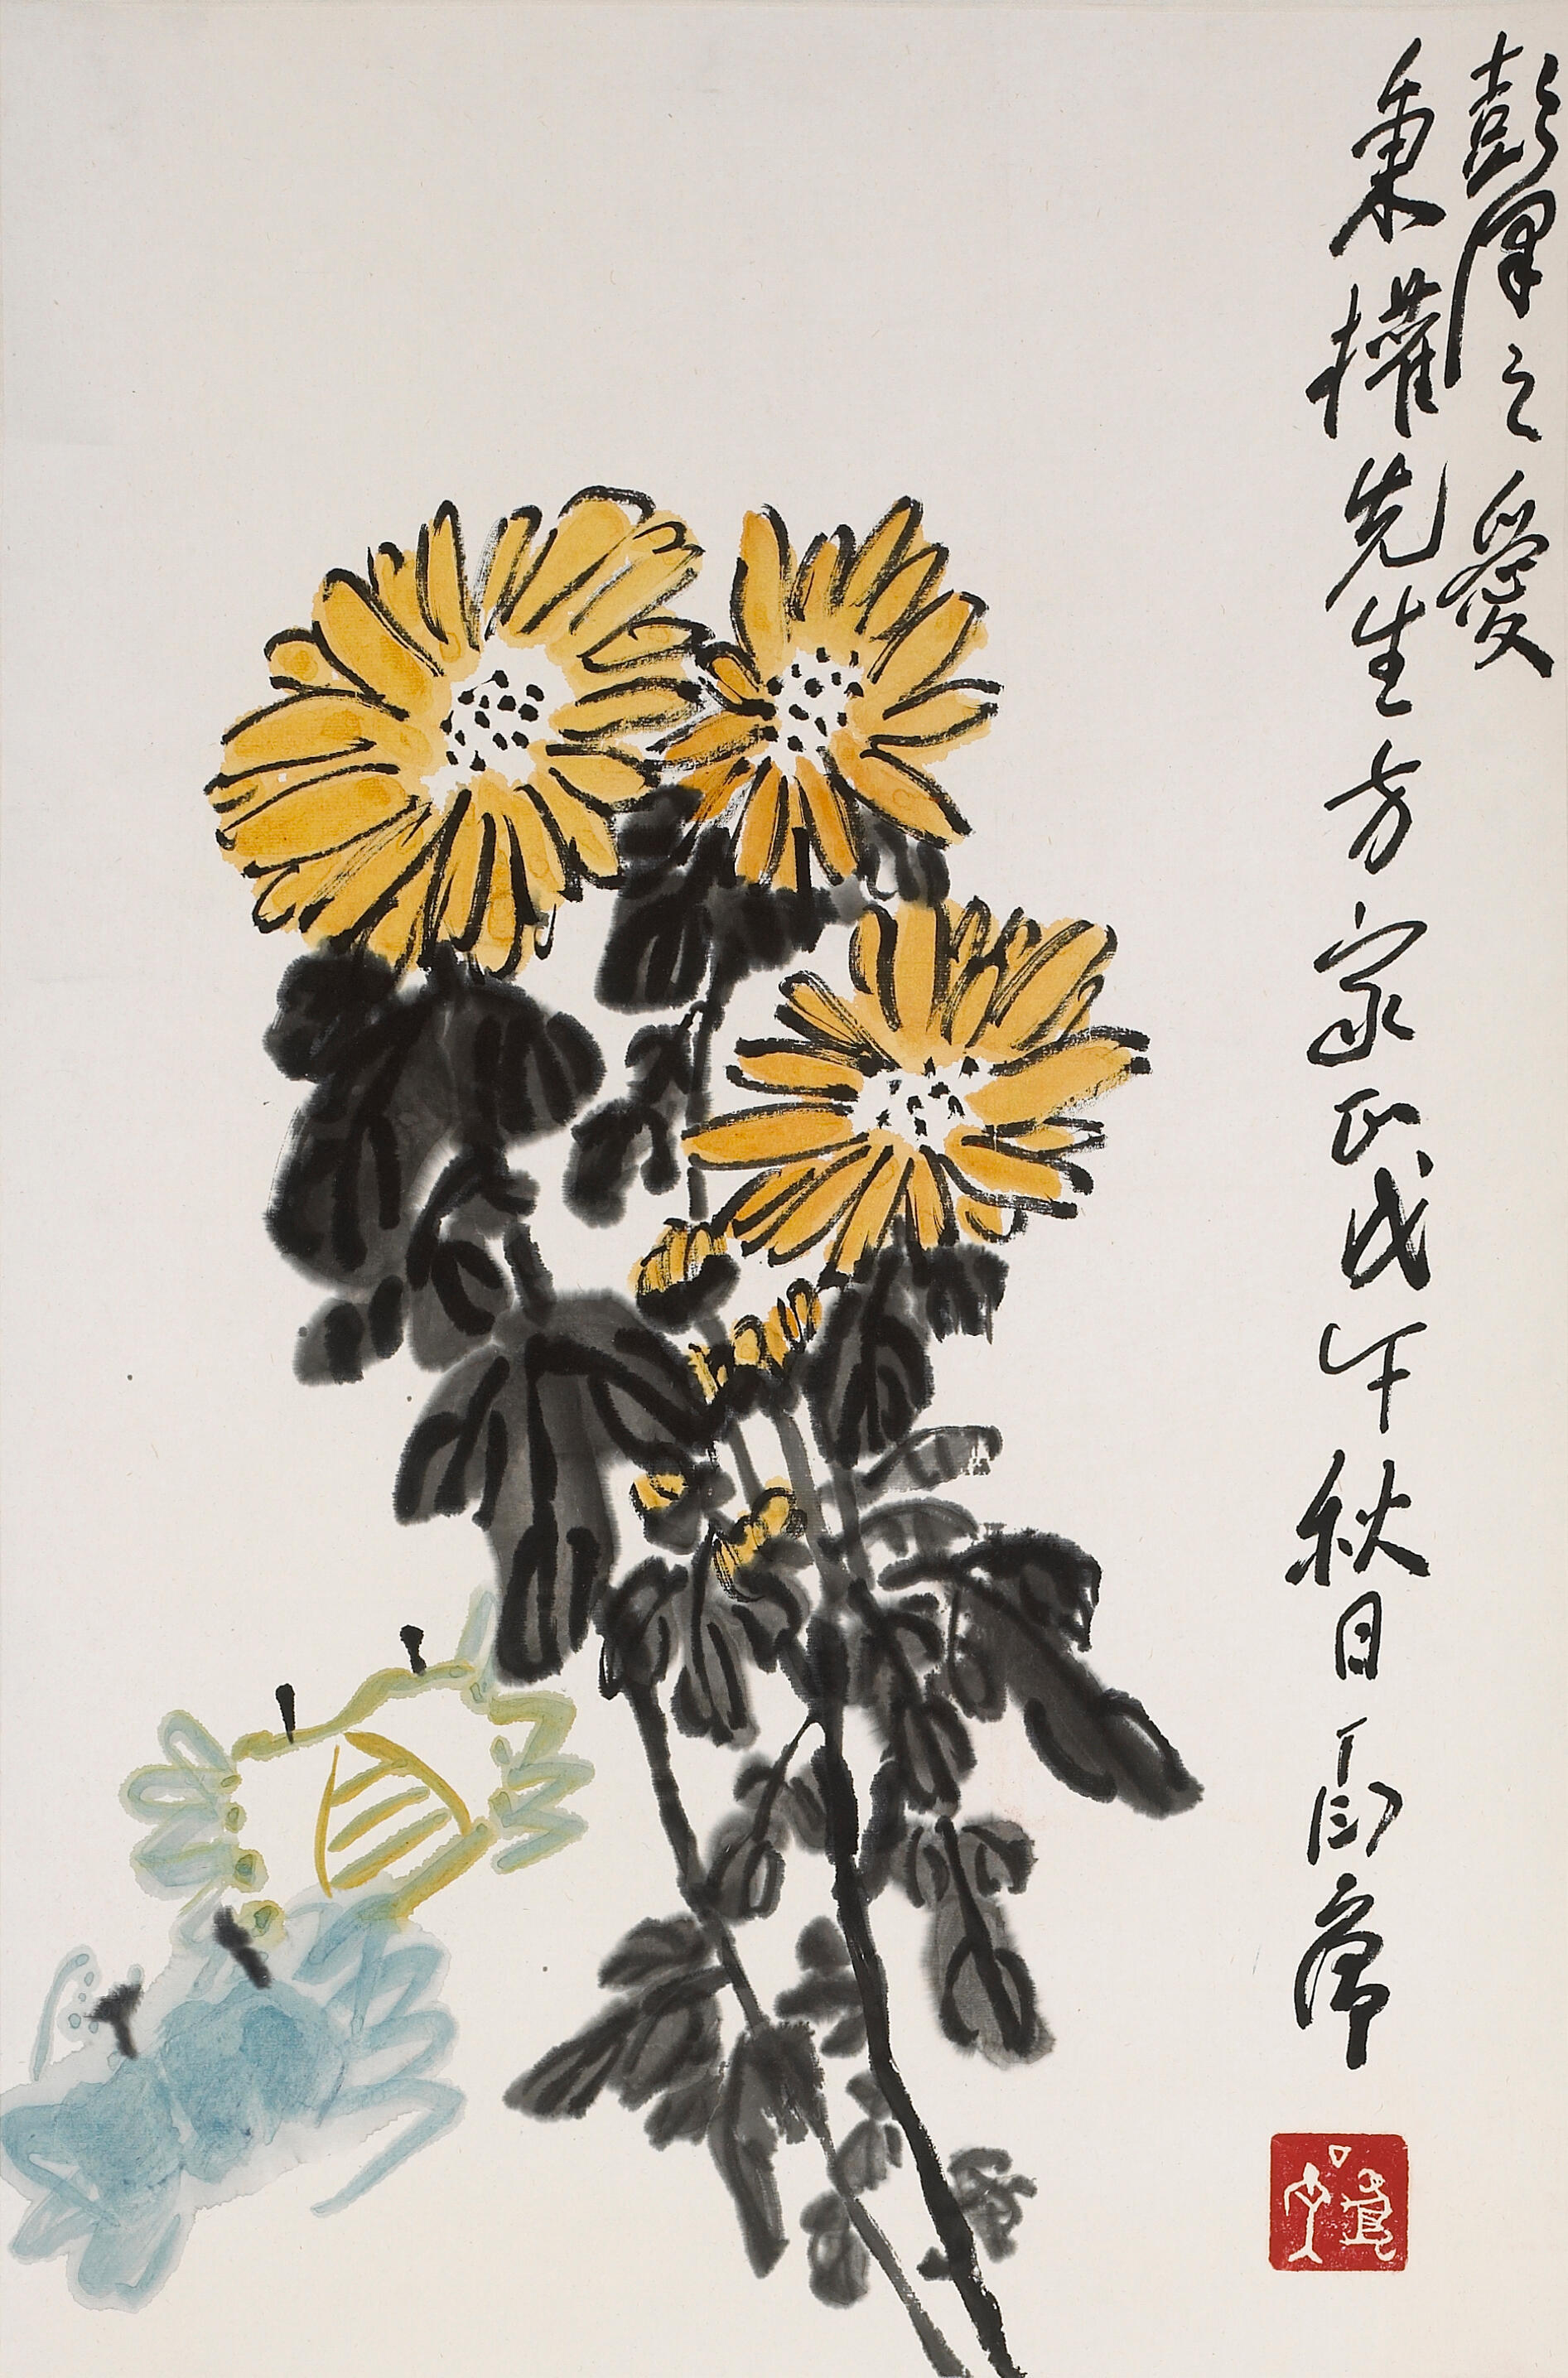 彭澤之愛
秉權先生方家正戊午秋日丁衍庸